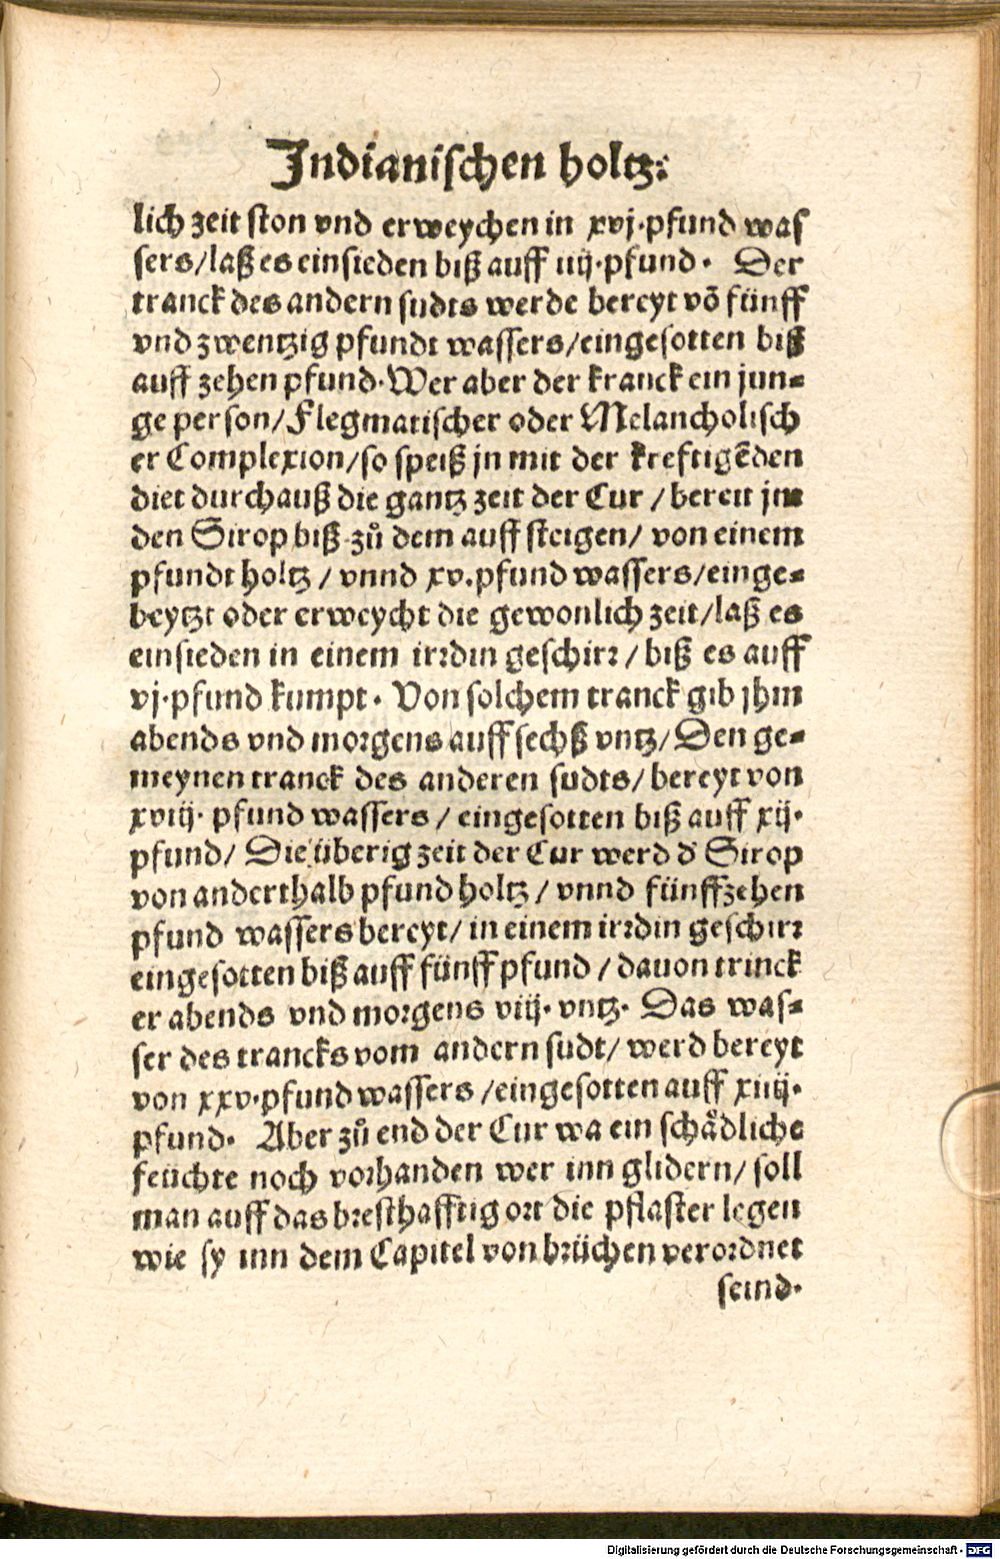 Indianischen holtz.
lich zeit ston vnd erweychen in xvj·pfund was
sers/laß es einsieden biß auff iiij·pfund· Der
tranck des andern sudts werde bereyt võ fünff
vnd zwentzig pfundt wassers/eingesotten biß
auff zehen pfund·Wer aber der kranck ein jun⸗
ge person/Flegmatischer oder Melancholisch
er Complexion/so speiß jn mit der kreftigẽden
diet durchauß die gantz zeit der Cur /bereit jm
den Sirop biß zů dem auff steigen/ von einem
pfundt holtz / vnnd xv.pfund wassers/einge⸗
beytzt oder erweycht die gewonlich zeit/laß es
einsieden in einem irrdin geschirr / biß es auff
vj·pfund kumpt· Von solchem tranck gib jhm
abends vnd morgens auff sechß vntz/ Den ge⸗
meynen tranck des anderen sudts/ bereyt von
xviij· pfund wassers / eingesotten biß auff xij·
pfund/ Die überig zeit der Cur werd d' Sirop
von anderthalb pfund holtz / vnnd fünffzehen
pfund wassers bereyt/ in einem irrdin geschirr
eingesotten biß auff fünff pfund / dauon trinck
er abends vnd morgens viij· vntz· Das was⸗
ser des trancks vom andern sudt/ werd bereyt
von xxv·pfund wassers /eingesotten auff xiiij·
pfund· Aber zů end der Cur wa ein schädliche
feüchte noch vorhanden wer inn glidern/ soll
man auff das bresthafftig ort die pflaster legen
wie sy inn dem Capitel von brüchen verordnet
seind·
Digitalisierung gefördert durch die Deutsche Forschungsgemeinschaft - DFG